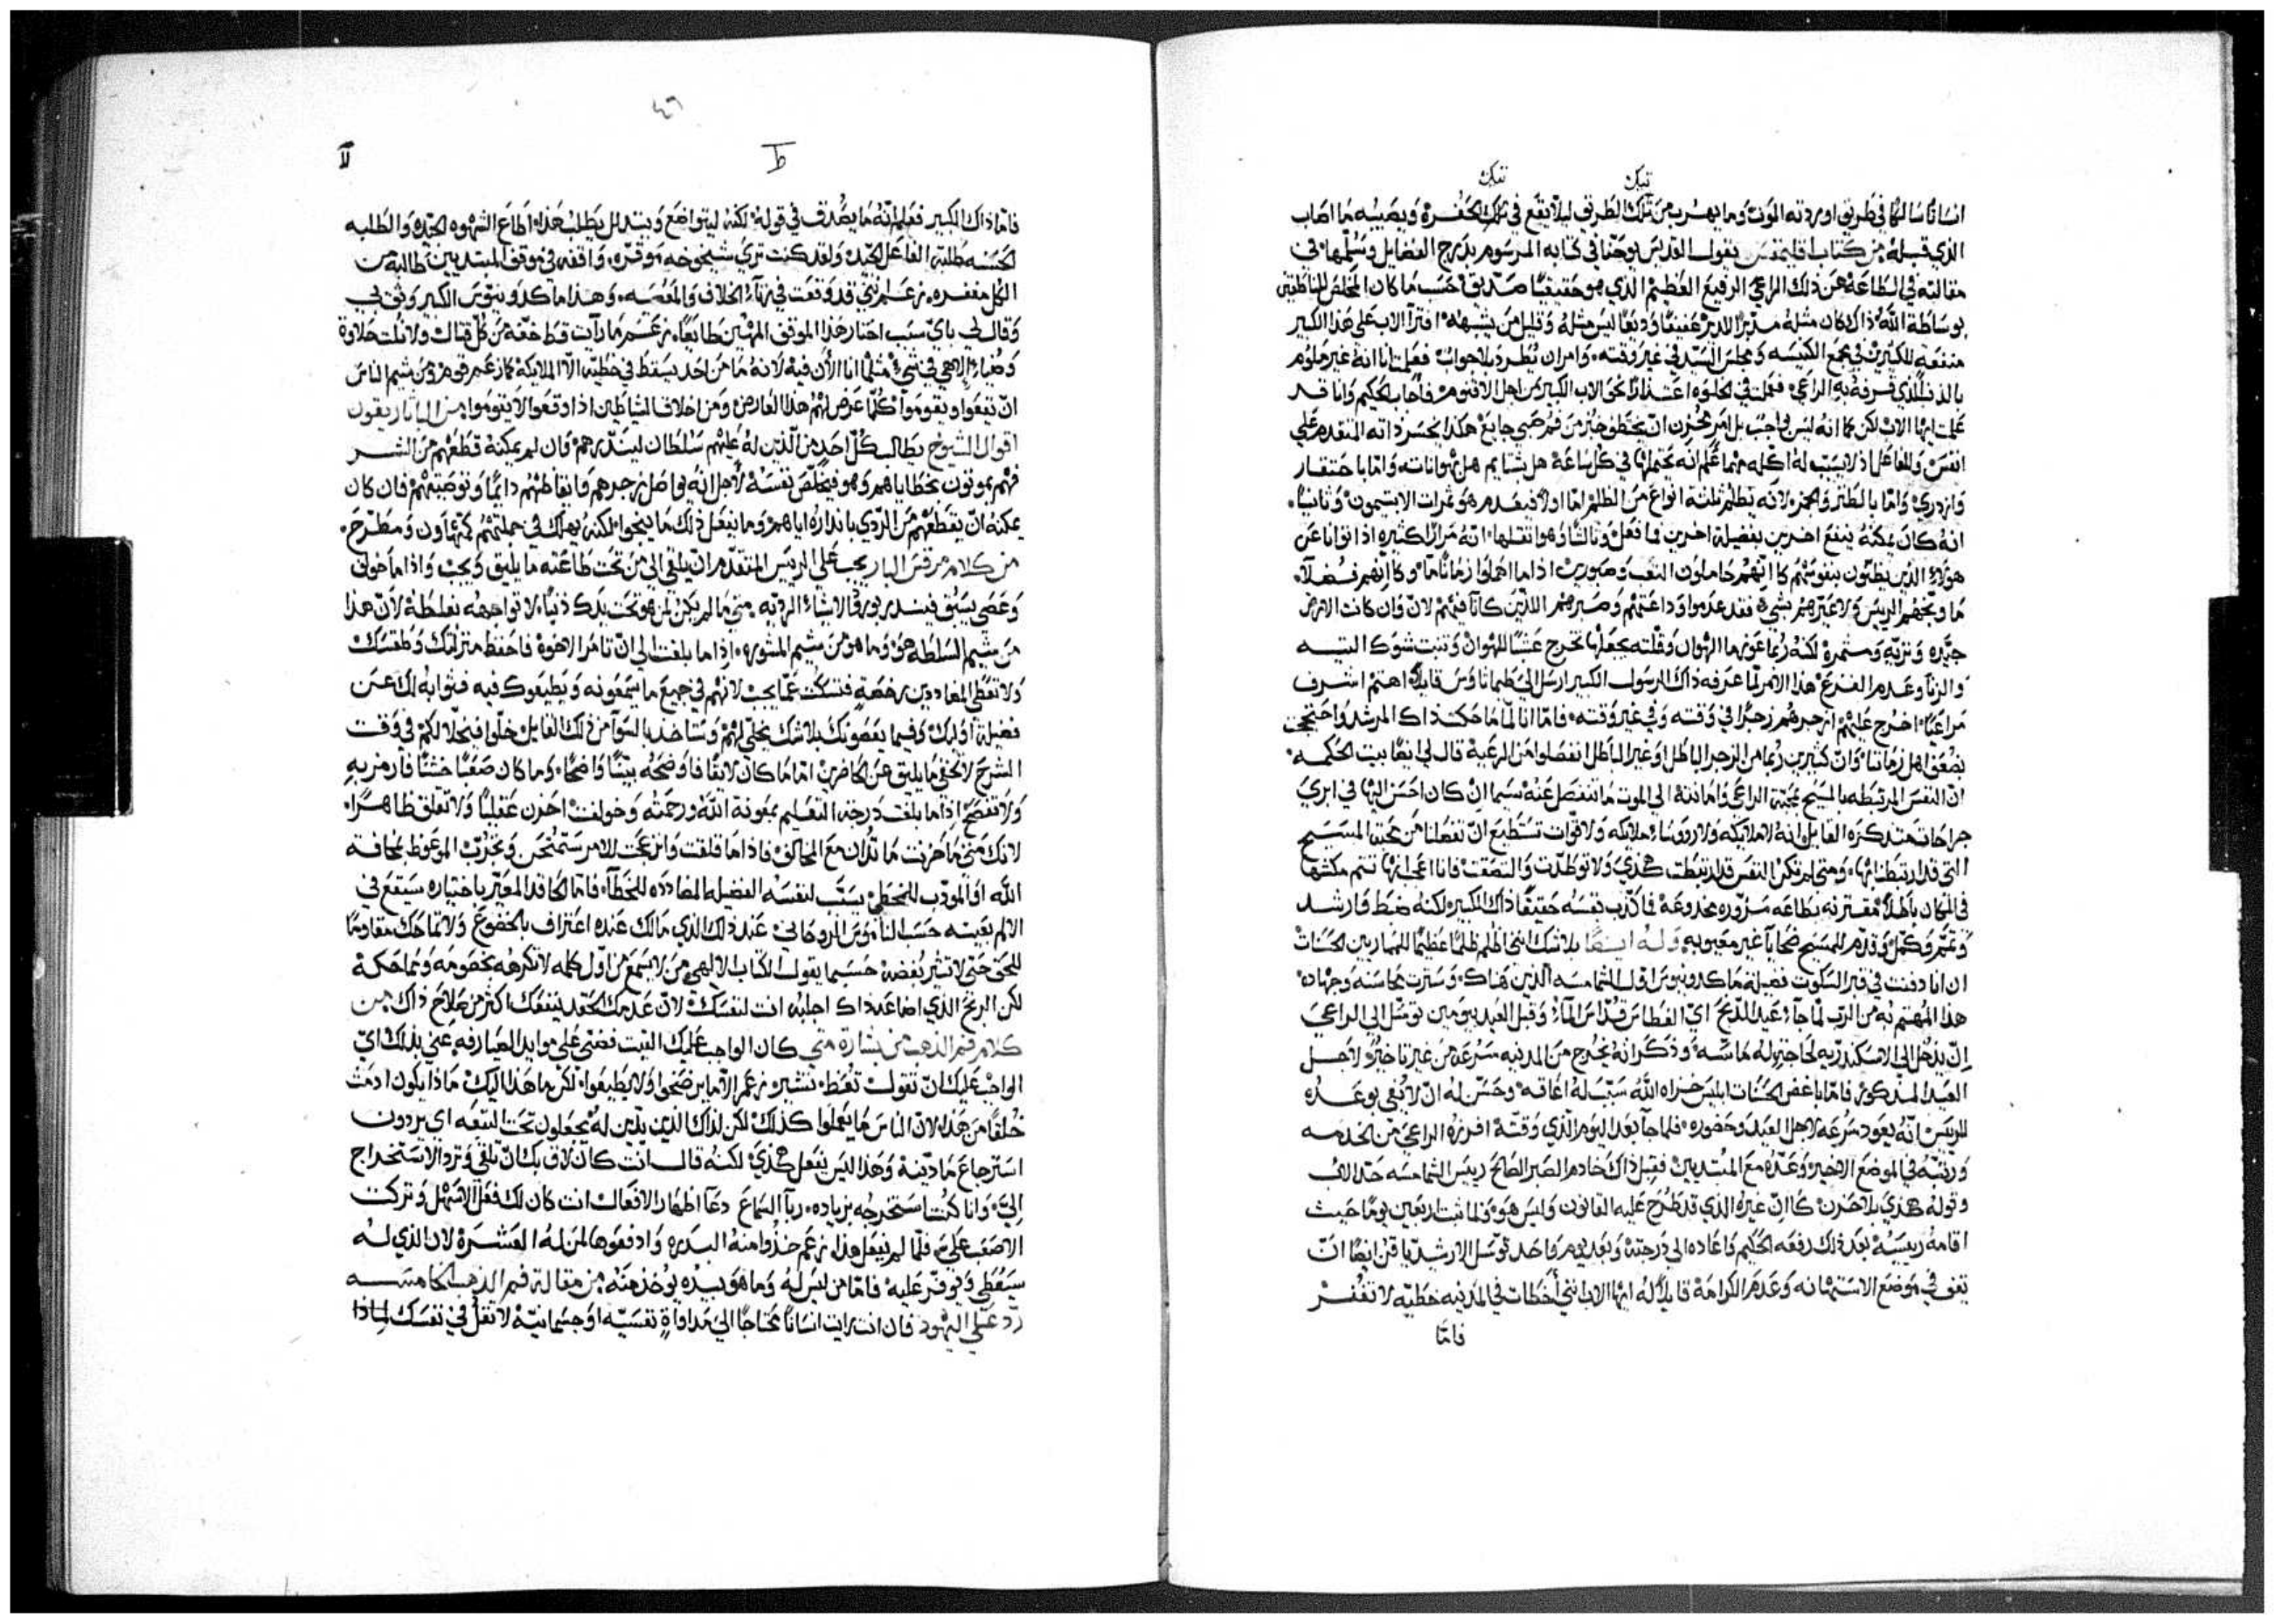 تيك تيك
انسانًا سالكًا في طريق اوردته الموت وما يهرب من تلك الطريق ليلا يقع في تلك الحفره ويصيبه ما اصاب
الذي قبله من كتاب اقليمقس يقول القديس يوحنا في كتابه المرسوم بدرج الفضايل وسلمها في
مقالته في الطاعة عن ذلك الراعي الرفيع العظيم الذي هو حقيقيًا صديق حسب ما كان المخلص للناطقين
بوساطة الله ذاك كان مثله مدبرًا للدير عفيفًا وديعًا ليس مثله وقليل من يشبهه افترا الاب علي هذا الكبير
منفعه للكثيرين في مجمع الكنيسه ومجلس السيد في غير وقته وامر ان يطرد بلا جواب فعلمت انا انه غير ملوم
بالذنب الذي قرفه به الراعي فعملت في الخلوه اعتذارًا نحو الاب الكبير من اجل الاقنوم فاجاب الحكيم وانا قد
علمت ايها الاب لكن كما انه ليس واجب بل امر محزن ان يختطف خبز من فم صبي جايع هكذا يخسر ذاته المتقدم علي
انفس وللفاعل اذ لا يسبب له اكله مهما علم انه يحتملها في كل ساعة هل بشتايم هل بهوانات واما باحتقار
وازدري واما بالطنز والهزء لانه يظلم ثلثة انواع من الظلم اما اولا فيعدم هو ثمرات الانتيمون وثانيا
انه كان يمكنه ينفع اخرين بفضيلة اخرين فما فعل وثالثا وهو اثقلها انه مرارًا كثيره اذا توانا عن
هولاء الذين يظنون بنفوسهم كانهم حاملون التعب وصبورين اذا ما اهملوا زمانًا ما وكانهم فضلا
ما وبخهم الريس ولا عيرهم بشيء فقد عدموا وداعتهم وصبرهم اللذين كانا فيهم لان وان كانت الارض
جيده وتربه ومثمره لكنه ربما عوزها الهوان وقلته يجعلها تخرج عشبًا للهوان وتنبت شوك التيه
والزنا وعدم الفزع هذا الامر لما عرفه ذاك الرسول الكبير ارسل الي طيماثاوس قايلا اهتم اشرف
مراعيًا اخرج عليهم ازجرهم زجرًا في وقته وفي غير وقته فاما انا لما ماحكت ذاك المرشد واحتججت
بضعف اهل زماننا وان كثيرين ربما من الزجر الباطل او غير الباطل انفصلوا من الرعية قال لي ايضًا بيت الحكمه
ان النفس المرتبطه بالمسيح بمحبة الراعي وامانته الي الموت ما تنفصل عنه سيما ان كان احسن اليها في ابري
جراحات متذكره القايل انه لا ملايكه ولا روسا ملايكه ولا قوات تستطيع ان تفصلنا من محبة المسيح
التي قد ارتبطنا بها ومتي لم تكن النفس قد ارتبطت هكذي ولا توطدت والتصقت فانا اعجب بها تتم مكثها
في المكان باطلا مقترنه بطاعه مزوره مخدوعه فما كذب نفسه حقيقًا ذاك الكبير لكنه ضبط وارشد
وتمم وكمل وقدم للمسيح ضحايا غير معيوبه وله ايضًا بلا شك انني اظلم ظلمًا عظيمًا للمبارين الحسنات
ان انا دفنت في قبر السكوت فضيلة ماكدونيوس اول الشمامسه الذين هناك وسترت محاسنه وجهاده
هذا المهتم به من الرب لما جاء عيد الدنح اي الغطاس قداس الماء وقبل العيد بيومين توسل الي الراعي
ان يدخل الي الاسكندريه لحاجة له ماسه وذكر انه يخرج من المدينه سرعة من غير تاخير لاجل
العيد المذكور فاما باغض الحسنات ابليس خزاه الله سبب له اعاقه وحسن له ان لا يفي بوعده
للريس انه يعود سرعه لاجل العيد وحضوره فلما جا بعد اليوم الذي وقته افرزه الراعي من الخدمه
ورتبه في الموضع الاخير وعده مع المبتديين فقبل ذاك خادم الصبر الصالح رييس الشمامسه حد الاب
وقوله هكذي بلا حزن كان غيره الذي قد طرح عليه القانون وليس هو ولما ثبت اربعين يومًا حيث
اقامه رييسه بعد ذلك رفعه الحكيم واعاده الي درجته وبعد يوم واحد توسل الارشديا قن ايضًا ان
يقف في موضع الاستهانه وعدم الكرامة قايلا له ايها الاب انني اخطات في المدينه خطيه لا تغفر
فامّا
لا
فامّا ذاك الكبير فعلم انه ما يصدق في قوله لكنه ليتواضع ويتذلل يطلب هذا اطاع الشهوه الجيده والطلبه
الحسنه طلبة الفاعل الجيد ولقد كنت تري شيخوخه موقره واقفه في موقف المبتديين طالبة من
الكل مغفره زعم انني قد وقعت في زناء الخلاف والمعصيه وهذا ماكدونيوس الكبير وثق بي
وقال لي باي سبب اختار هذا الموقف المهين طايعًا زعم ما رايت قط خفة من كل قتال ولا نلت حلاوة
وضياء الاهي في شيء مثلما انا الان فيه لانه ما من احد يسقط في خطيه الا الملايكه كما زعم قوم ومن شيم الناس
ان يقعوا ويقوموا كلما عرض لهم هذا العارض ومن اخلاق الشياطين اذا وقعوا لا يقوموا من الباتاريقون
اقوال الشيوخ يطالب كل احد من الذين له عليهم سلطان لينذرهم فان لم يمكنه قطعهم من الشر
فهم يموتون بخطاياهم وهو فيخلص نفسه لاجل انه يواصل زجرهم وايقاظهم دايمًا وتوصيتهم فان كان
يمكنه ان يقطعهم من الردي بانذاره اياهم وما يفعل ذلك ما ينجوا لكنه يهلك في جملتهم كمتهاون ومطرح
من كلام مرقس البار يجب علي الريس المتقدم ان يلقي الي من تحت طاعته ما يليق ويجب واذا ما خولف
وعصي يسبق فينذر بورود الاشياء الرديه متي ما لم يكن من هو تحت يدك ذنبًا لا تواجهه بغلطه لان هذا
من شيم السلطه هو وما هو من شيم المشوره اذا ما بلغت الي ان تامر الاخوة فاحفظ منزلتك وطقسك
ولا تعطي المعاددين رخصة فتسكت عما يجب لانهم في جميع ما يسمعونه ويطيعوك فيه فثوابه لك عن
فضيلة اوليك وفيما يعصونك بلا شك يخلي لهم وستاخذ بالسوا من ذلك القايل خلوا فيخلا لكم في وقت
الشرح لا تخفي ما يليق عن الحاضرين اما ما كان لايقًا فاوضحه بيّنًا واضحًا وما كان صعبًا خشنًا فارمز به
ولا تفصح اذا ما بلغت درجة التعليم بمعونة الله ورحمته وخولفت احزن عقليًا ولا تقلق ظاهرًا
لانك متي ما حزنت ما تدان مع المخالف فاذا ما قلقت وانزعجت للامر ستمتحن وتجرب الموعوظ بمخافة
الله او المودب للمخطي يسبب لنفسه الفضيله المضادده للخطا فاما الحاقد المعير باختياره سيقع في
الالم بعينه حسب الناموس الروحاني عند ذلك الذي مالك عنده اعتراف بالخضوع ولا تماحك مقاومًا
للحق حتي لا تثير بغضه حسبما يقول الكتاب الالهي من لا يسمع من اول كلمه لا تكرهه بخصومه ومماحكة
لكن الربح الذي اضاعه ذاك اجلبه انت لنفسك لان عدمك الحقد ينفعك اكثر من صلاح ذاك من
كلام فم الذهب من بشارة متي كان الواجب عليك التبت فضتي علي موايد الصيارفه عني بذلك اي
الواجب عليك ان تقول تعظ تشير زعم الا ما يرضخوا ولا يطيعوا لكن ما هذا اليك ماذا يكون ادمث
خلقًا من هذا لان الناس ما يعملوا كذلك لكن لذاك الذين يدين له يجعلون تحت التبعه اي يردون
استرجاع مادينه وهذا ليس يفعل هكذي لكنه قال انت كان لاق بك ان تلقي وترد الاستخراج
الي وانا كنت استخرجه بزياده ربا السماع دعا اظهار الافعال انت كان لك فعل الاسهل وتركت
الاصعب علي فلما لم يفعل هذا زعم خذوا منه البدره وادفعوها لمن له العشره لان الذي له
سيعطي ويوفر عليه فاما من ليس له وما هو بيده يوخذ منه من مقالة فم الذهب الخامسه
رد علي اليهود فان انت رايت انسانًا محتاجًا الي مداواة نفسيه او جسمانيه لا تقل في نفسك لماذا